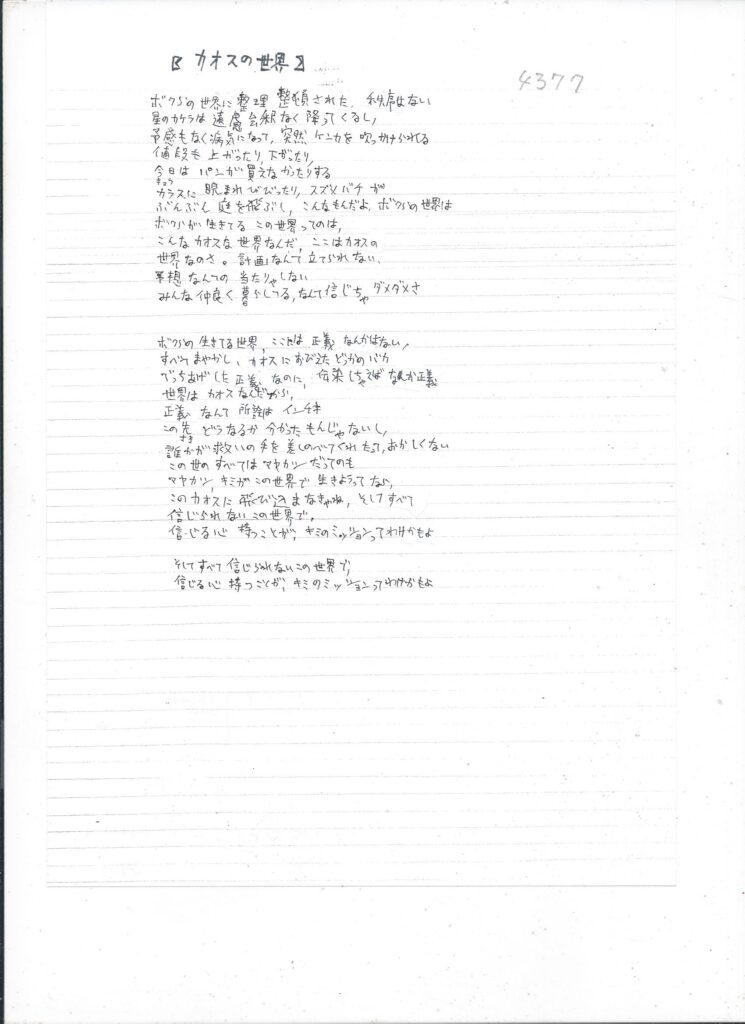 【カオスの世界】
4377
ボクらの世界に整理 整頓された、秩序はない
星のカケラは遠慮会釈なく降ってくるし、
予感もなく病気になって、突然ケンカを吹っかけられる
値段も上がったり、下がったり、
今日は パンが買えなかったりする
きょう
カラスに睨まれびびったり、スズメバチが
ぶんぶん庭を飛ぶし、こんなもんだよ、ボクらの世界は
ボクらが生きてるこの世界ってのは、
こんなカオスな世界なんだ、ここはカオスの
世界なのさ。計画なんて立てられない、
予想なんての当たりゃしない
みんな仲良く暮らしてる,なんて信じちゃダメダメさ
ボクらの生きてる世界、ここには正義なんかはない,
すべてまやかし、カオスにおびえたどっかのバカ
でっちあげした正義なのに、伝染しちゃえばなんか正義
世界はカオスなんだから,
正義なんて所詮はインチキ
この先どうなるか分かったもんじゃないし,
さき
誰かが救いの手を差しのべてくれたって,おかしくない
この世のすべてはマヤカシだってのも
マヤカシ,キミがこの世界で生きようってなら,
このカオスに飛び込まなきゃね,そしてすべて
信じられないこの世界で。
信じる心持つことが,キミのミッションってわけかもよ
そしてすべて信じられないこの世界で,
信じる心持つことが,キミのミッションってわけかもよ